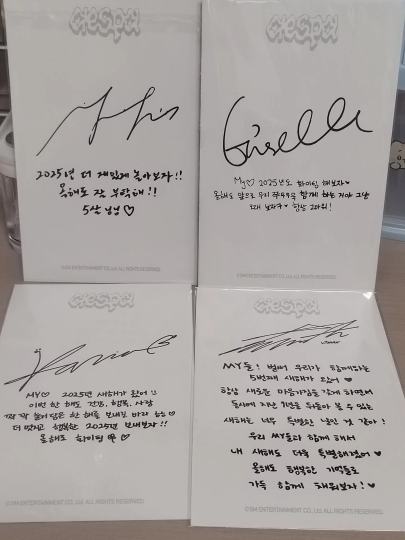 aespa
2025년 더 재밌게 놀아보자!!
올해도 잘 부탁해!!
5살 닝닝♡
© SM ENTERTAINMENT CO., Ltd. ALL RIGHTS RESERVED.
aespa
Giselle
My♡ 2025년도 화이팅 해보자♥
올해도 앞으로 우리 함께 하는 거야 그냥
항상 고마워!
© SM ENTERTAINMENT CO., Ltd. ALL RIGHTS RESERVED.
aespa
MY♡ 2025년 새해가 왔어
이번 한 해도 건강, 행복, 사랑
꽉 꽉 눌러담은 한 해를 보내길 바라
더 멋지고 행복한 2025년 보내보자!!
올해도 화이팅
© SM ENTERTAINMENT CO., Ltd. ALL RIGHTS RESERVED.
aespa
MY들! 벌써 우리가 함께하는
5번째 새해가 왔어♥
항상 새로운 마음가짐을 갖게 하면서
동시에 지난 1년을 뒤돌아 볼 수 있는
새해는 너무 특별한 날인 것 같아!
우리 MY들과 함께 해서
내 새해도 더욱 특별해졌어♥
올해도 행복한 기억들로
가득 함께 채워보자!♥
© SM ENTERTAINMENT CO., Ltd. ALL RIGHTS RESERVED.